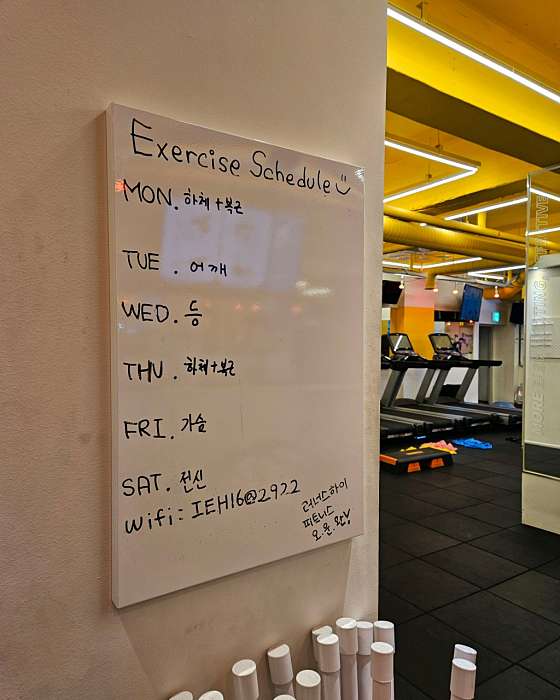 Exercise Schedule
MON. 하체+복근
TUE. 어깨
WED. 등
THU. 하체+복근
FRI. 가슴
SAT. 전신
Wifi: IEH16@2922
러너스하이
피트니스
오.운.완